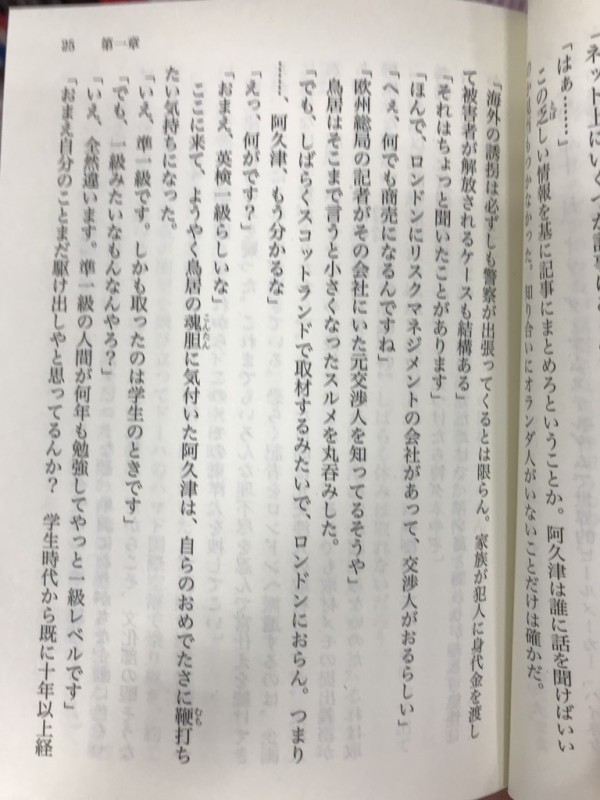 「ネット上にいくつか記事は
「はぁ……」
この乏しい情報を基に記事にまとめろということか。阿久津は誰に話を聞けばいい
のか見当もつかなかった。知り合いにオランダ人がいないことだけは確かだ。
「海外の誘拐は必ずしも警察が出張ってくるとは限らん。家族が犯人に身代金を渡し
て被害者が解放されるケースも結構ある」
「それはちょっと聞いたことがあります」
「ほんで、ロンドンにリスクマネジメントの会社があって、交渉人がおるらしい」
「へぇ、何でも商売になるんですね」
「欧州総局の記者がその会社にいた元交渉人を知ってるそうや」
鳥居はそこまで言うと小さくなったスルメを丸呑みした。
「でも、しばらくスコットランドで取材するみたいで、ロンドンにおらん。つまり
……、阿久津、もう分かるな」
「えっ、何がです？」
「おまえ、英検一級らしいな」
ここに来て、ようやく鳥居の魂胆に気付いた阿久津は、自らのおめでたさに鞭打ち
たい気持ちになった。
「いえ、準一級です。しかも取ったのは学生のときです」
「でも、一級みたいなもんなんやろ？」
「いえ、全然違います。準一級の人間が何年も勉強してやっと一級レベルです」
「おまえ自分のことまだ駆け出しやと思ってるんか？　学生時代から既に十年以上経
25 第一章